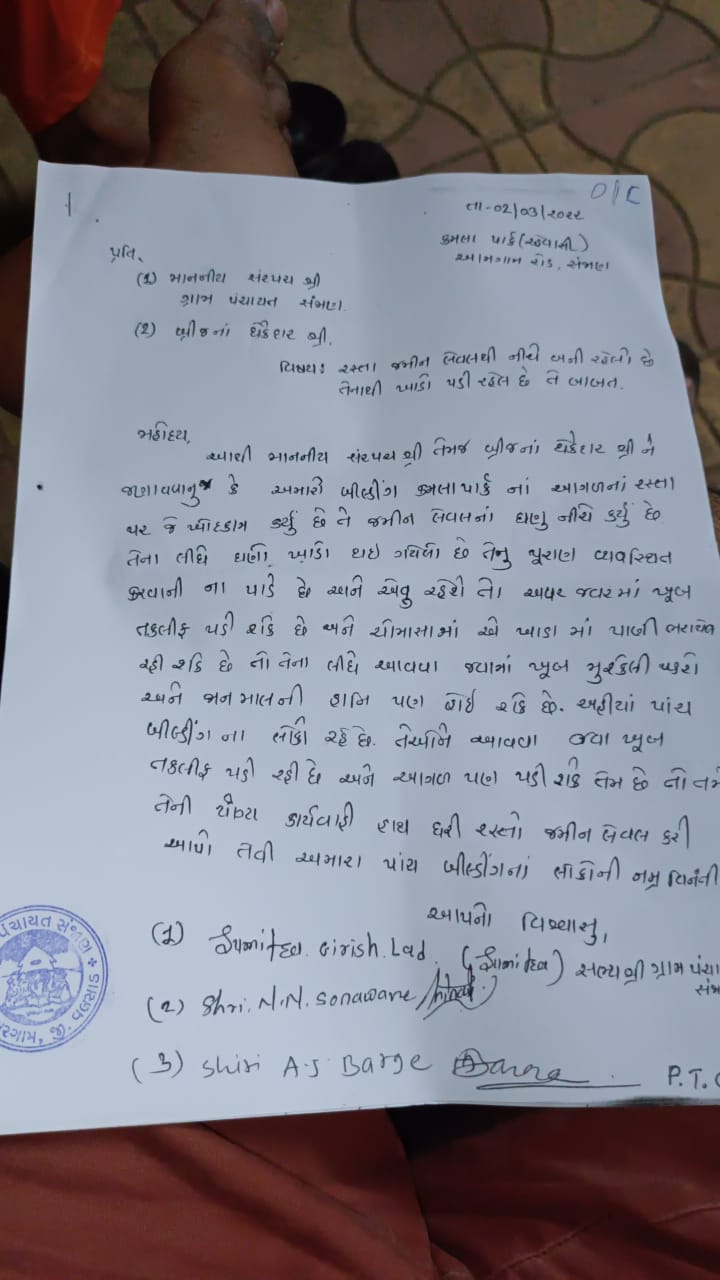 O/C
તા-02/03/૨૦૨૨
કમલા પાર્ક(રહેવાસી)
આમગામ રોડ, સંજાણ
પ્રતિ,
(1) માનનીય સરપંચ શ્રી
ગ્રામ પંચાયત સંજાણ.
(૨) બ્રીજનાં ઠેકેદાર શ્રી.
વિષય: રસ્તા જમીન લેવલથી નીચે બની રહેલી છે
તેનાથી ખાડો પડી રહેલ છે તે બાબત.
મહોદય,
આથી માનનીય સરપંચ શ્રી તેમજ બ્રીજનાં ઠેકેદાર શ્રી ને
જણાવવાનુ કે અમારી બીલ્ડીંગ કમલા પાર્ક નાં આગળનાં રસ્તા
પર જે ખોદકામ કર્યું છે તે જમીન લેવલનાં ઘણુ નીચે કર્યું છે
તેના લીધે ઘણો ખાડો થઇ ગયેલો છે તેનુ પૂરાણ વ્યવસ્થિત
કરવાની ના પાડે છે અને એવુ રહેશે તો અવર જવરમાં ખૂબ
તકલીફ પડી શકે છે અને ચોમાસામાં એ ખાડા માં પાણી ભરાયેલ
રહી શકે છે તો તેના લીધે આવવા જવામાં ખૂબ મુશ્કેલી પડશે
અને જાનમાલની હાનિ પણ થઇ શકે છે. અહીયાં પાંચ
બીલ્ડીંગ ના લોકો રહે છે. તેઓને આવવા જવા ખૂબ
તકલીફ પડી રહી છે અને આગળ પણ પડી શકે તેમ છે તો તમે
તેની યોગ્ય કાર્યવાહી હાથ ધરી રસ્તો જમીન લેવલ કરી
આપો તેવી અમારા પાંચ બીલ્ડીંગનાં લોકોની નમ્ર વિનંતી
આપનો વિશ્વાસુ,
(1) Sumitra Girish. Lad. (Sumitra) સભ્ય શ્રી ગ્રામ પંચા
સંજા
(૨) Shri. N.N. Sonawane
(૩) Shri A.S Barge Barge
P.T.O
પંચાયત સંજાણ
જી. વલસાડ